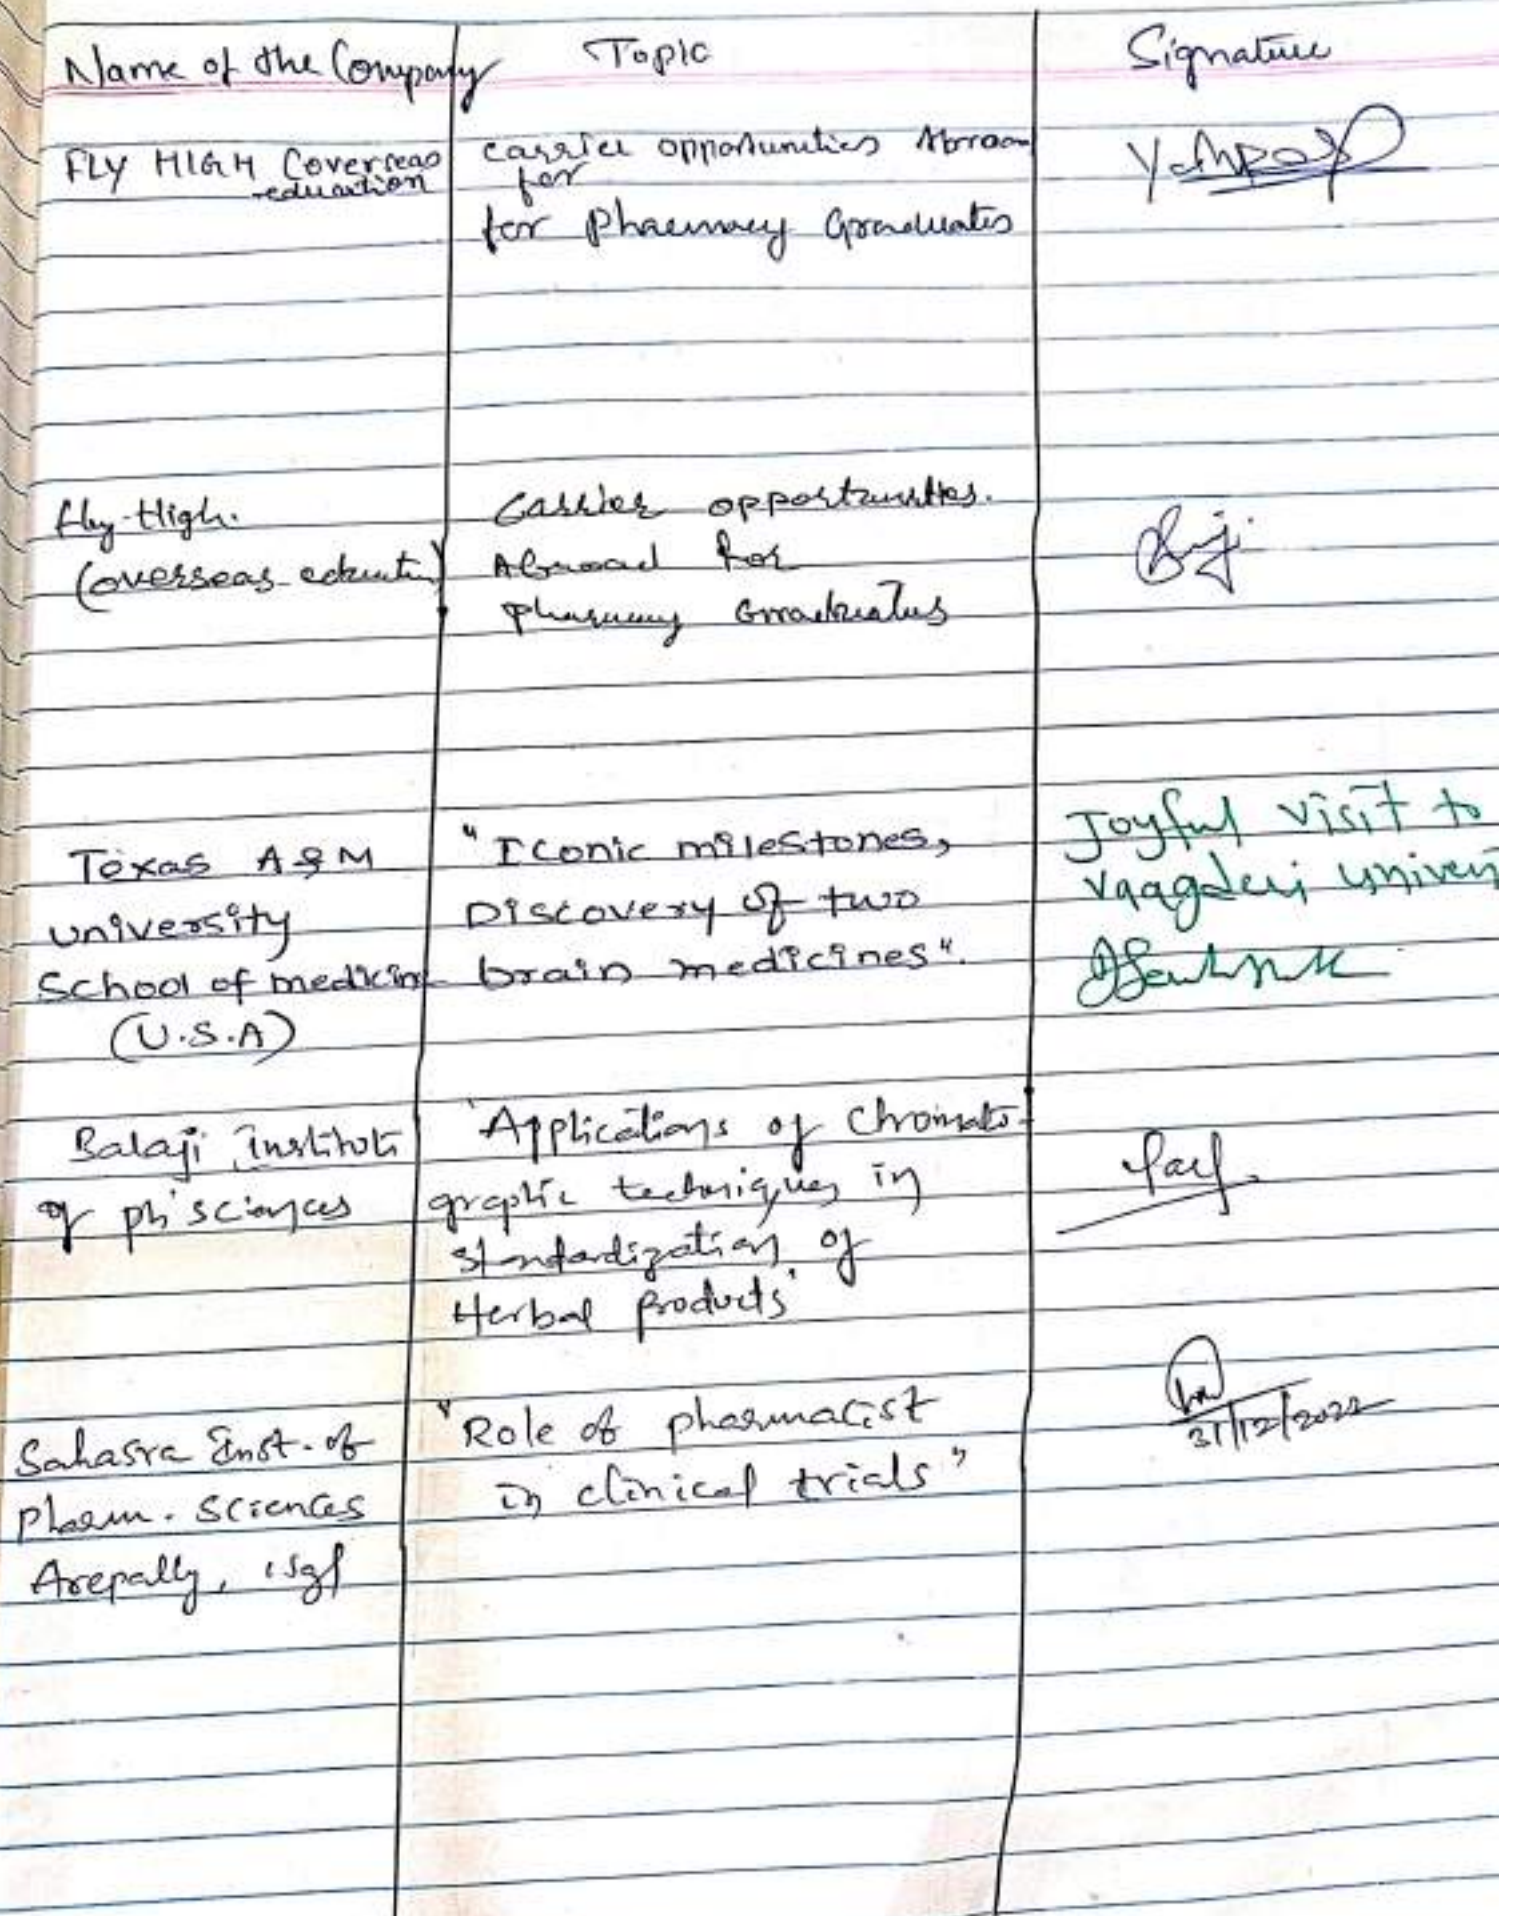 Name of the Company
Topic
Signature
FLY HIGH (overseas
eduation
carrier opportunities Abroad
for
for Pharmacy Graduates
Fly-High.
(overseas education)
carrier opportunities.
Abroad for
pharmacy Graduates
Texas A&M
university
School of medicin
(U.S.A)
"Iconic milestones,
Discovery of two
brain medicines".
Joyful visit to
Vaagdevi univers
Balaji institute
of ph'sciences
'Applications of Chromato-
graphic techniques in
standardization of
Herbal products'
Sahasra Inst. of
Pharm. Sciences
Arepally,
"Role of pharmacist
in clinical trials"
31/12/2022